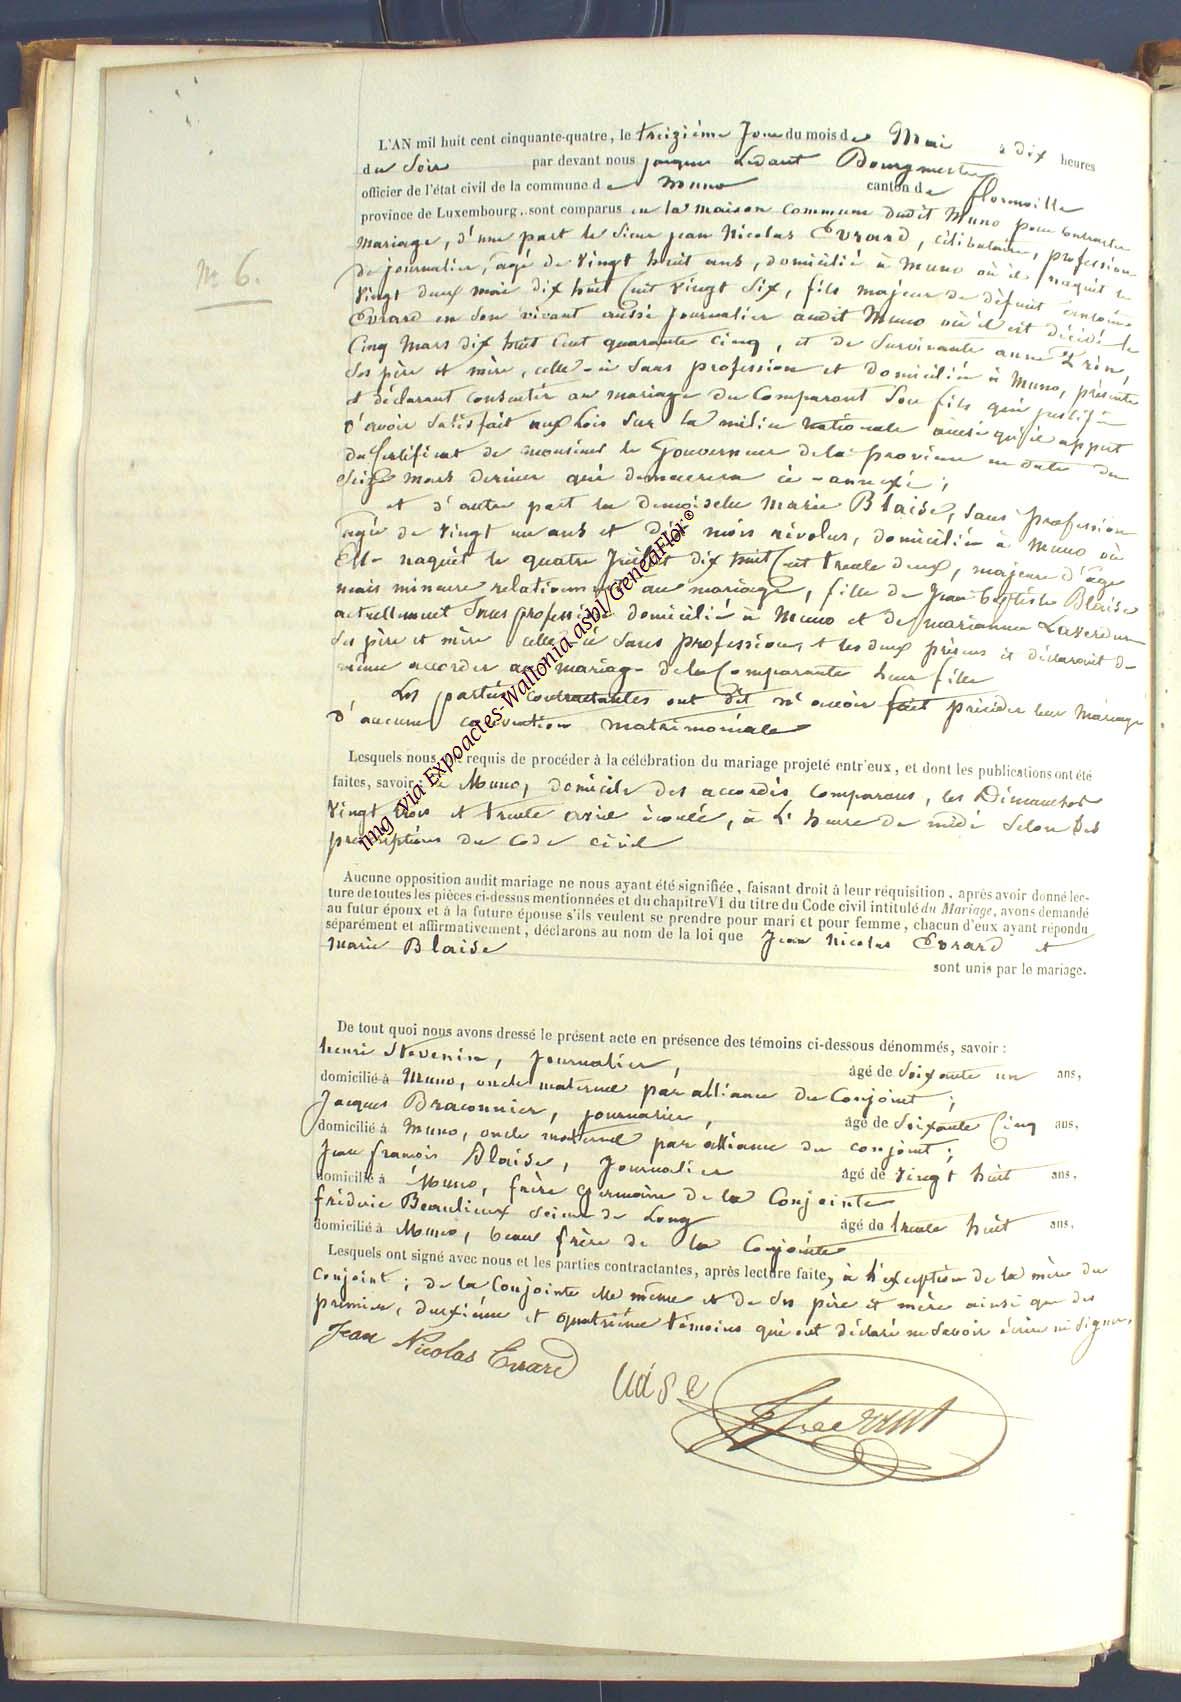 N° 6.
L'AN mil huit cent cinquante-quatre, le treizième Jour du mois de Mai à dix heures
du Soir par devant nous jacques Ledant Bourgmestre
officier de l'état civil de la commune de Muno canton de florenville
province de Luxembourg, sont comparus en la maison commune dudit Muno pour contracter
Mariage, d'une part le Sieur jean Nicolas Evrard, célibataire, profession
de journalier, agé de vingt huit ans, domicilié à Muno où il naquit le
vingt deux mai dix huit Cent vingt Six, fils majeur de défunt
Evrard en Son vivant aussi journalier audit Muno où il est décédé le
Cinq Mars dix huit Cent quarante Cinq, et de Survivante anne
Ses père et mère, celle-ci Sans profession et domiciliée à Muno, présente
et déclarant consentir au mariage du Comparant Son fils qui justifie
d'avoir Satisfait aux lois Sur la milice nationale ainsi qu'il appert
du Certificat de monsieur le Gouverneur de la Province en date du
Seize mars dernier qui demeurera ci-annexé ;
et d'autre part la demoiselle Marie Blaise, Sans profession
agée de vingt un ans et dix mois révolus, domiciliée à Muno où
Elle naquit le quatre Juillet dix huit Cent trente deux, majeure d'âge
mais mineure relativement au mariage, fille de Jean-Baptiste Blaise
actuellement Sans profession domicilié à Muno et de marianne Laverdure
Ses père et mère celle-ci Sans profession, et les deux présens et déclarant de
même accorder au mariage de la Comparante leur fille
Les parties contractantes ont dit n'avoir fait précéder leur Mariage
d'aucune convention matrimoniale
Lesquels nous ont requis de procéder à la célébration du mariage projeté entr'eux, et dont les publications ont été
faites, savoir : à Muno, domicile des accordés comparans, les Dimanches
vingt trois et trente avril écoulé, à L'heure de midi Selon Les
prescriptions du Code civil
Aucune opposition audit mariage ne nous ayant été signifiée, faisant droit à leur réquisition, après avoir donné lec-
ture de toutes les pièces ci-dessus mentionnées et du chapitre VI du titre du Code civil intitulé du Mariage, avons demandé
au futur époux et à la future épouse s'ils veulent se prendre pour mari et pour femme, chacun d'eux ayant répondu
séparément et affirmativement, déclarons au nom de la loi que Jean Nicolas Evrard et
Marie Blaise
sont unis par le mariage.
De tout quoi nous avons dressé le présent acte en présence des témoins ci-dessous dénommés, savoir :
henri Stevenin, Journalier, âgé de Soixante un ans,
domicilié à Muno, oncle maternel par alliance du Conjoint ;
Jacques Braconnier, journalier, âgé de Soixante Cinq ans,
domicilié à Muno, oncle maternel par alliance du conjoint ;
Jean françois Blaise, Journalier âgé de vingt huit ans,
domicilié à Muno, frère germain de la Conjointe
fréderic Beaulieux Scieur de Long âgé de trente huit ans,
domicilié à Muno, beau frère de la Conjointe
Lesquels ont signé avec nous et les parties contractantes, après lecture faite, à l'exception de la mère du
Conjoint ; de la Conjointe elle même et de Ses père et mère ainsi que des
premier, deuxième et quatrième témoins qui ont déclaré ne Savoir écrire ni Signer.
Jean Nicolas Evrard
img via Expoactes-Wallonia asbl/GeneaFlor®